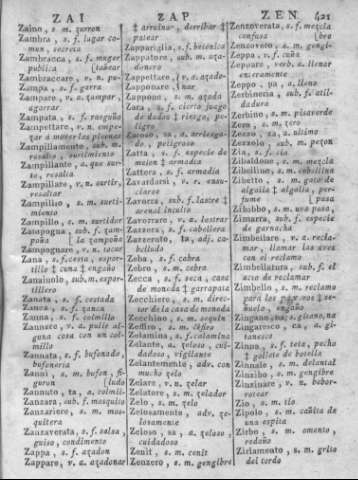 ZAI ZAP ZEN 421
Zaino, s. m. zurron
Zambra, s. f. lugar comun, secreta
Zambracca, s. f. muger
publica
Zambraccare, v. n. pu-
Zampa, s. f. garra
Zampare, v. a. zampar,
agarrar
Zampata, s. f. rasguño
Zampettare, v. n. empe-
zar a mover las piernas
Zampillamento, sub. m.
resalto, surtimiento
Zampillante, a. que sur-
te, resalta
Zampillare, v. n. surtir,
resaltar
Zampillio, s. m. surti-
miento
Zampillo, s. m. surtidor
Zampogna, sub. f. zam-
poña
Zampognare, v. n. tocar
Zana, s. f. cesta, espor-
tillo ‡ cuna ‡ engaño
Zanaiuolo, sub. m. espor-
Zanata, s. f. cestada
Zanca, s. f. zanca
Zanna, s. f. colmillo
Zannare, v. a. pulir al-
guna cosa con un col-
millo
Zannata, s. f. bufonada,
bufoneria
Zanni, s. m. bufon, fi-
Zannuto, ta, a. colmil-
Zanzara, sub. f. mosquito
Zanzariere, s. m. mos-
quitera
Zanzaverata, s. f. salsa,
guiso, condimento
Zappa, s. f. azadon
Zappare, v. a. azadonar
‡ arruinar, derribar ‡
patear
Zappariglia, s. f. botanica
Zappatore, sub. m. aza-
donero
Zappettare, v. a. azado-
Zapponare, nar
Zappone, s. m. azada
Zara, s. f. cierto juego
de dados ‡ riesgo, pe-
ligro
Zaroso, sa, a. arriesga-
do, peligroso
Zatta, s. f. especie de
melon ‡ armadia
Zattera, s. f. armadia
Zavorra, sub. f. lastre ‡
arenal inculto
Zavorrare, v. a. lastrar
Zazzera, s. f. cabellera
Zazzeruto, ta, adj. ca-
belludo
Zeba, s. f. cabra
Zebro, s. m. cebra
Zecca, s. f. seca, casa
de moneda ‡ garrapata
Zecchiere, s. m. direc-
tor de la casa de moneda
Zecchino, s. m. sequin
Zeffiro, s. m. céfiro
Zelamina, s. f. calamina
Zelante, a. zeloso, cui-
dadoso, vigilante
Zelantemente, adv. con
mucho zelo
Zelare, v. n. zelar
Zelatore, s. m. zelador
Zelo, s. m. zelo
Zelosamente, adv. ze-
losamente
Zeloso, sa, a. zeloso,
cuidadoso
Zenit, s. m. cenit
Zenzero, s. m. gengibre
Zenzoverata, s. f. mezcla
confusa
Zenzovero, s. m. gengi-
Zeppa, s. f. cuña
Zeppare, verb. a. llenar
enteramente
Zeppo, pa, a. lleno
Zerbineria, sub. f. ati-
ladura
Zerbino, s. m. pisaverde
Zero, s. m. zero
Zezzo, za, a. ultimo
Zezzolo, sub. m. pezon
Zia, s. f. tia
Zibaldone, s. m. mezcla
Zibellino, s. m. cebellina
Zibetto, s. m. gato de
algalia ‡ algalia, per-
fume
Zibibbo, s. m. uva pasa
Zimarra, sub. f. especie
de garnacha
Zimbellare, v. a. recla-
mar, llamar las aves
con el reclamo
Zimbellatura, sub. f. el
acto de reclamar
Zimbello, s. m. reclamo
para los pajaros ‡ se-
ñuelo, engaño
Zingano, na, s. gitano, na
Zingaresco, ca, a. gi-
tanesco
Zinna, s. f. teta, pecho
‡ gollete de botella
Zinnale, s. m. delantal
Zinzibo, s. m. gengibre
Zinzinare, v. n. borbor-
rotear
Zio, s. m. tio
Zipolo, s. m. cañita de
una espita
Zirbo, s. m. omento,
redaño
Zirlamento, s. m. grito
del tordo